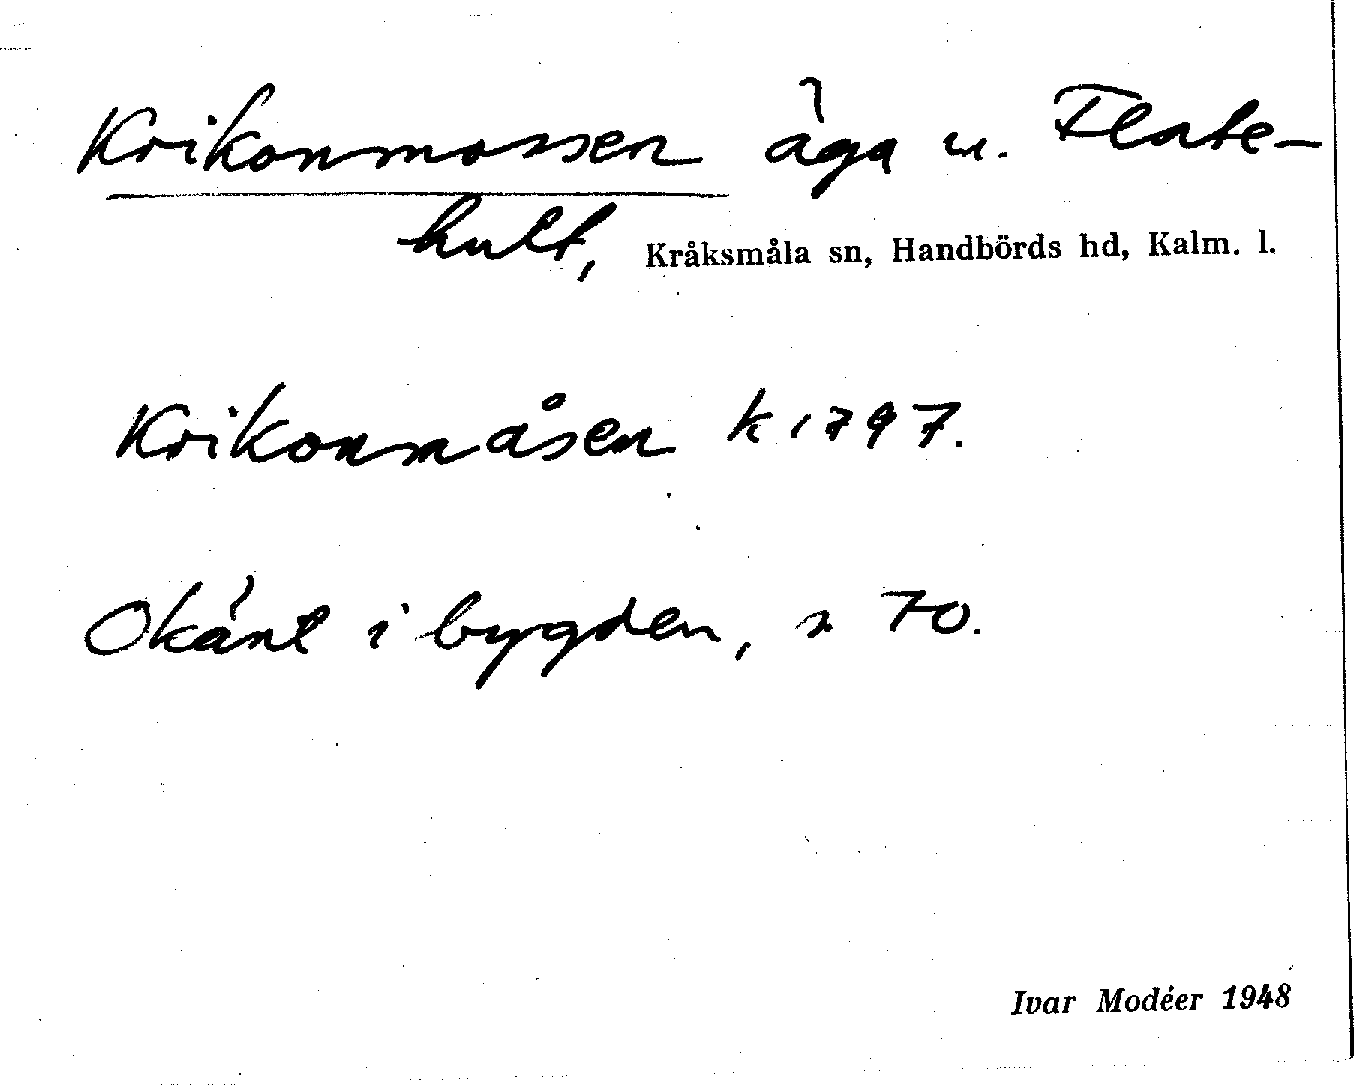 Krikonmossen äga u. Flate-
hult, Kråksmåla sn, Handbörds hd, Kalm. l.
Krikonmåsen k 1797.
Okänt i bygden, s 70.
Ivar Modéer 1948